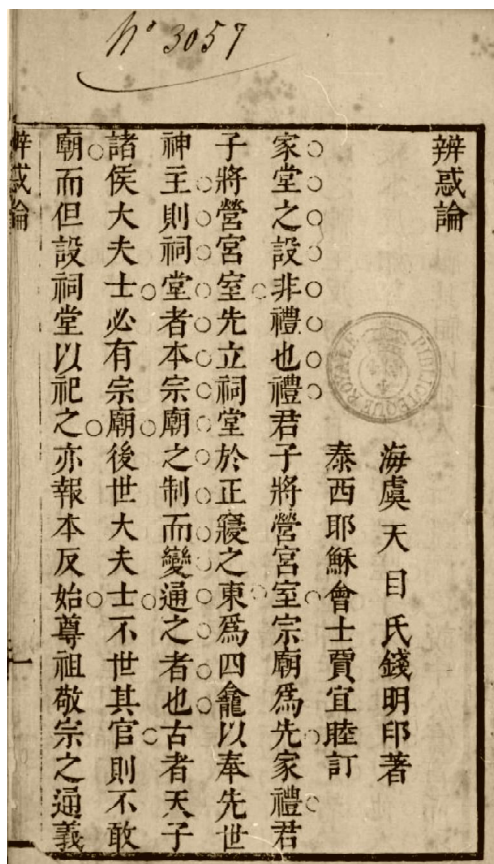 Nº 3057
辨惑論
海虞天目氏錢明印著
泰西耶穌會士賈宜睦訂
家堂之設非禮也禮君子將營宮室宗廟爲先家禮君
子將營宮室先立祠堂於正寢之東爲四龕以奉先世
神主則祠堂者本宗廟之制而變通之者也古者天子
諸侯大夫士必有宗廟後世大夫士不世其官則不敢
廟而但設祠堂以祀之亦報本反始尊祖敬宗之通義
辨惑論
一
BIBLIOTHEQUE ROYALE